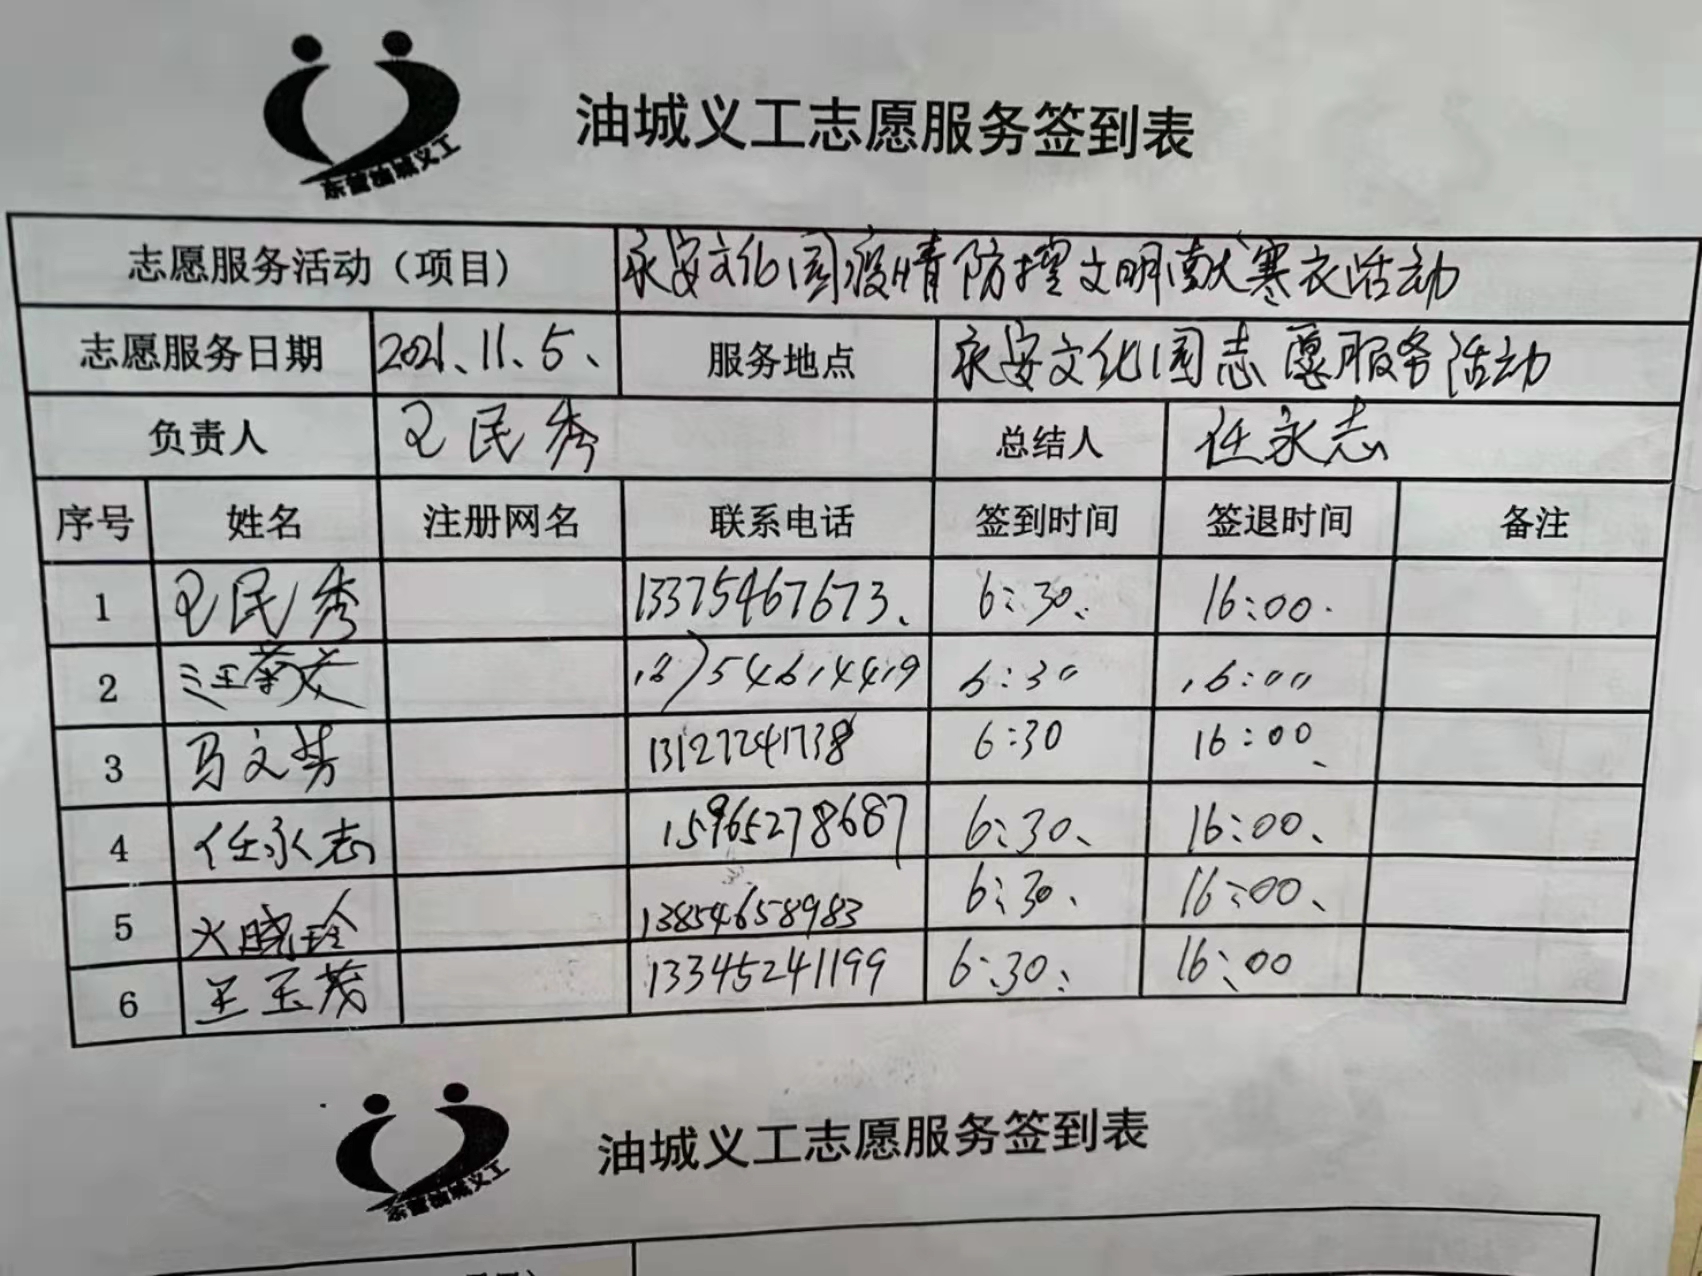 东营油城义工
油城义工志愿服务签到表
志愿服务活动（项目） 永安文化园疫情防控文明献寒衣活动
志愿服务日期 2021、11、5、 服务地点 永安文化园志愿服务活动
负责人 王民秀 总结人 任永志
序号 姓名 注册网名 联系电话 签到时间 签退时间 备注
1 王民秀 13375467673、 6:30、 16:00.
2 6:30 16:00
3 马文芳 13127241738 6:30 16:00、
4 任永志 15965278687 6:30、 16:00、
5 火晓玲 13854658983 6:30、 16:00、
6 王玉茂 13345241199 6:30、 16:00
东营油城义工
油城义工志愿服务签到表